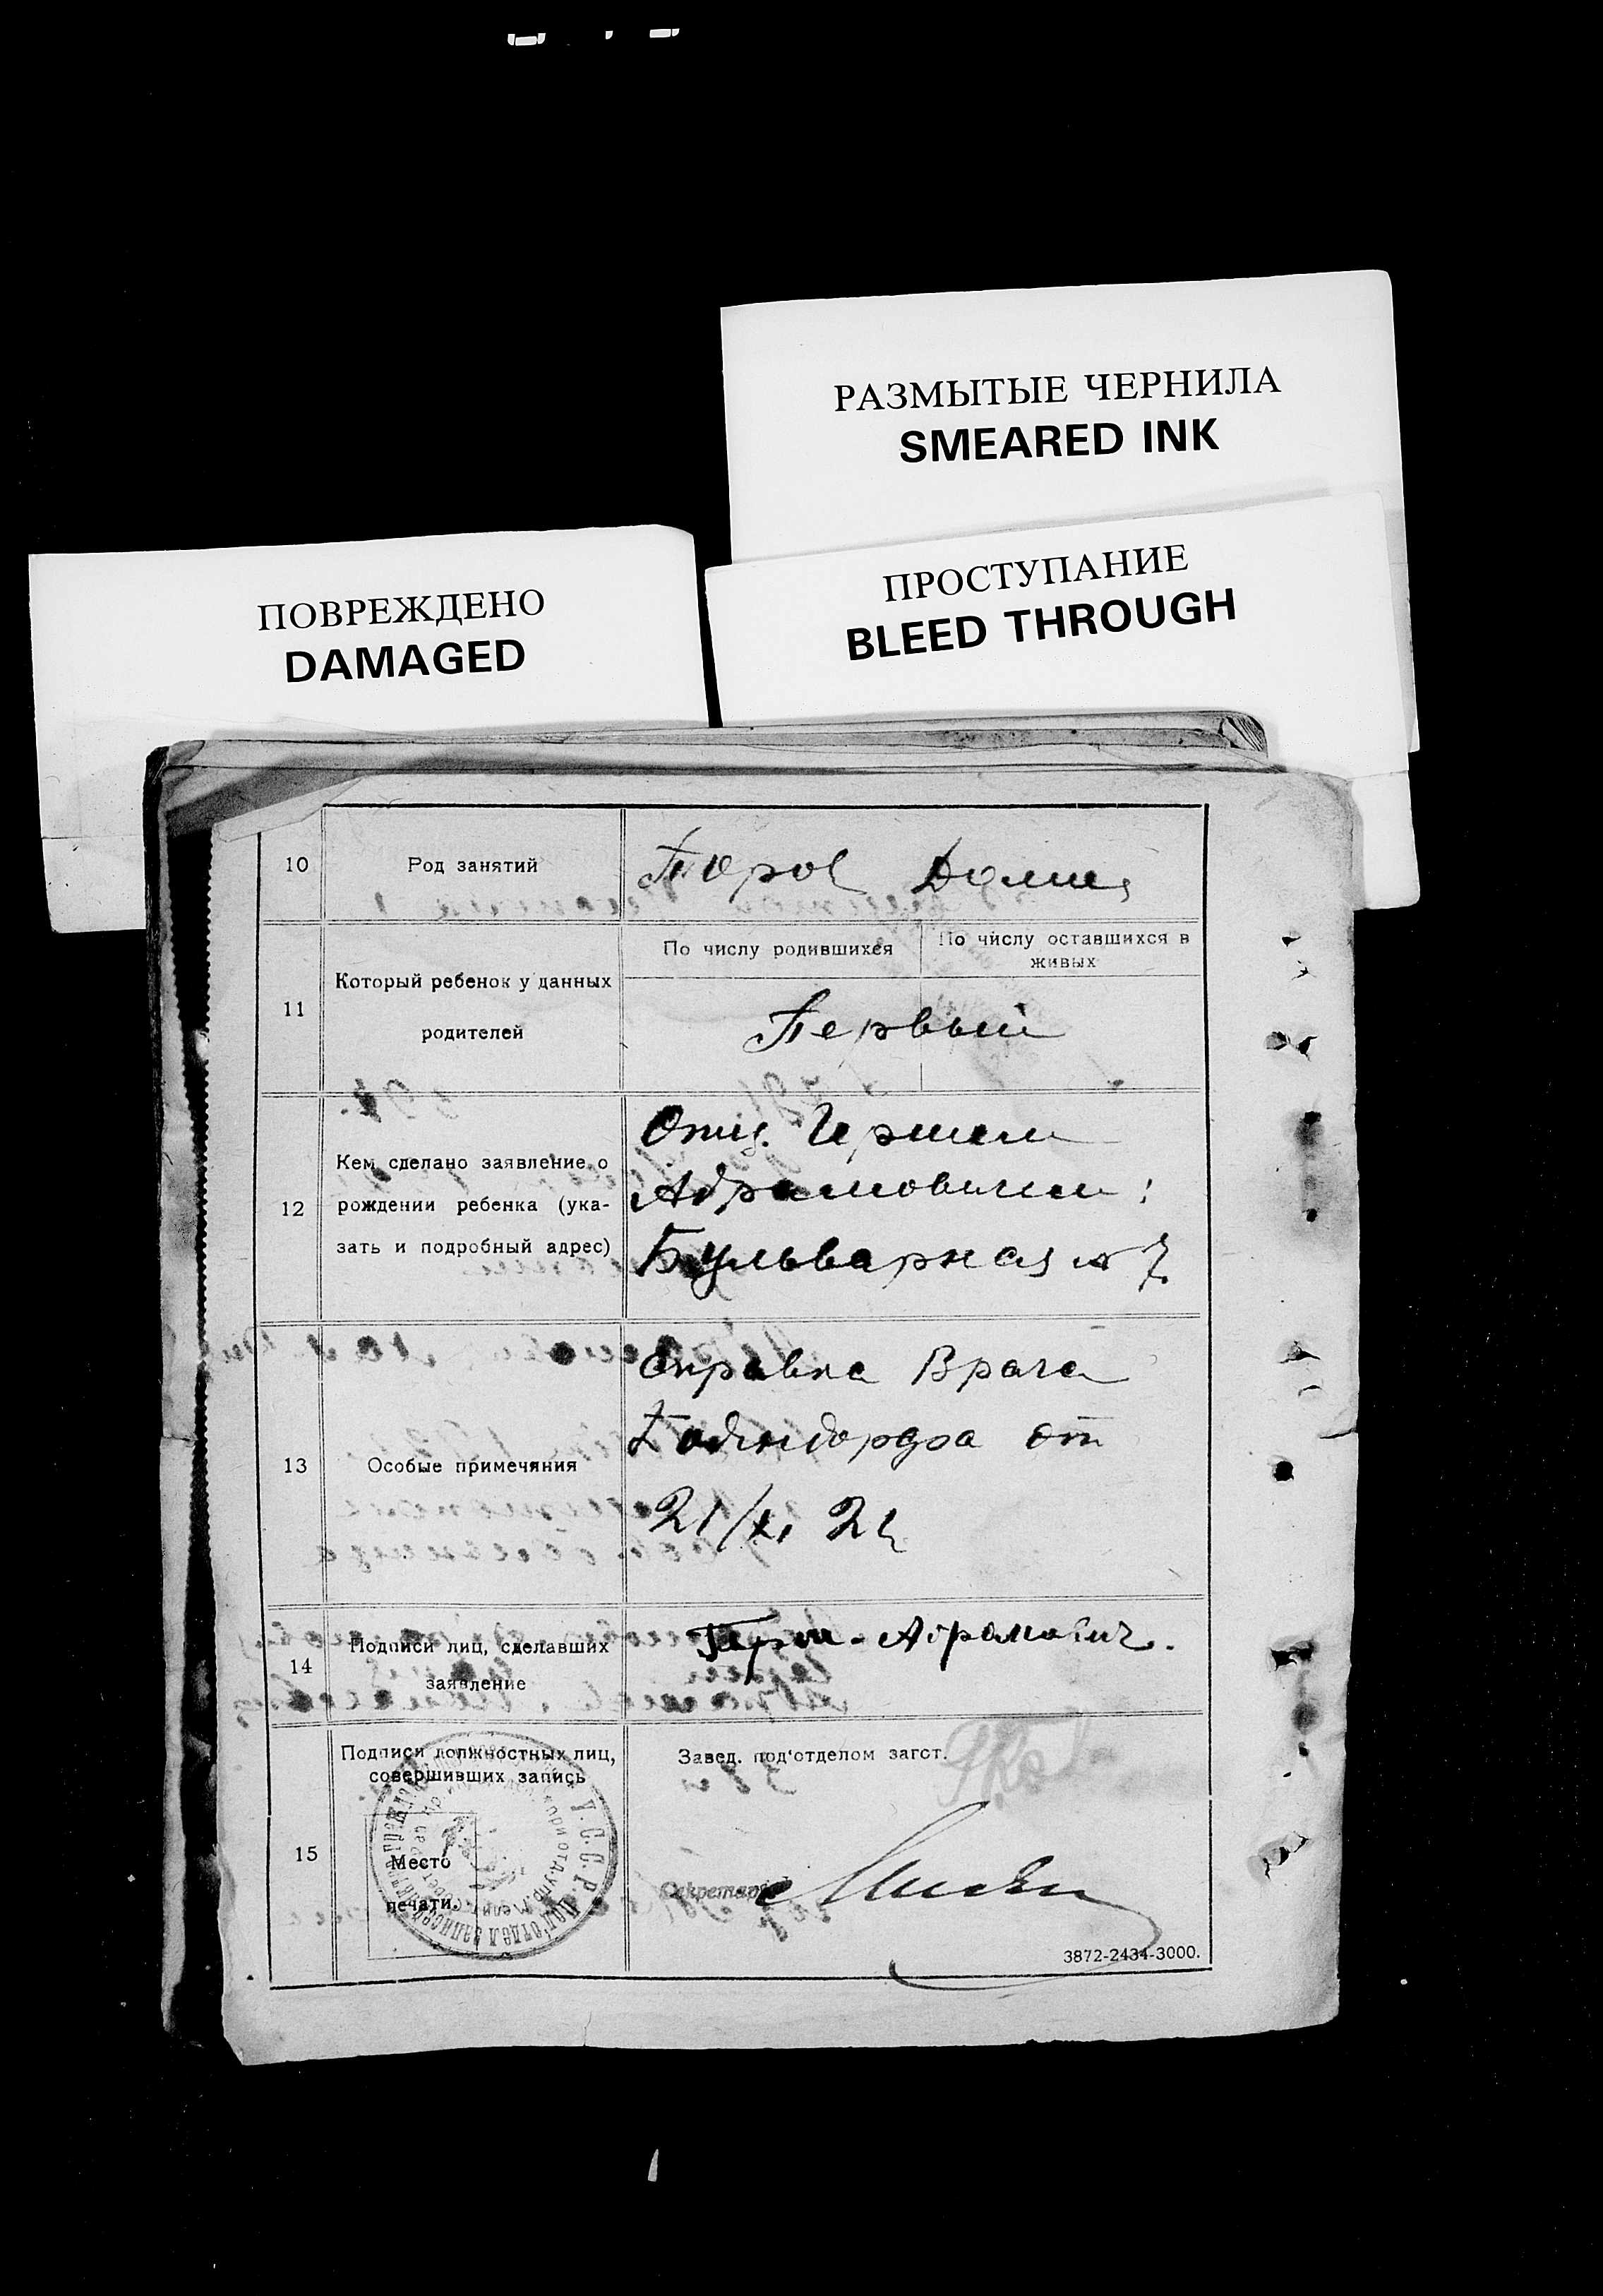 РАЗМЫТЫЕ ЧЕРНИЛА
SMEARED INK
ПРОСТУПАНИЕ
BLEED THROUGH
ПОВРЕЖДЕНО
DAMAGED
10
Род занятий
Домаш
11
Который ребенок у данных
родителей
По числу родившихся
По число оставшихся в
живых
Первый
12
Кем сделано заявление о
рождении ребенка (ука-
зать и подробный адрес)
Отц. Гершем
Абрамовичем:
Бульварная № 7
13
Особые примечяния
Справка Врача
от
21/XI 21
14
Подписи лиц, сделавших
заявление
Герш-Абрамович.
15
Подписи должностных лиц,
совершивших запись
Место
печати.
У.С.С.Р.
Завед. под'отделом загст.
Секретарь
3872-2434-3000.